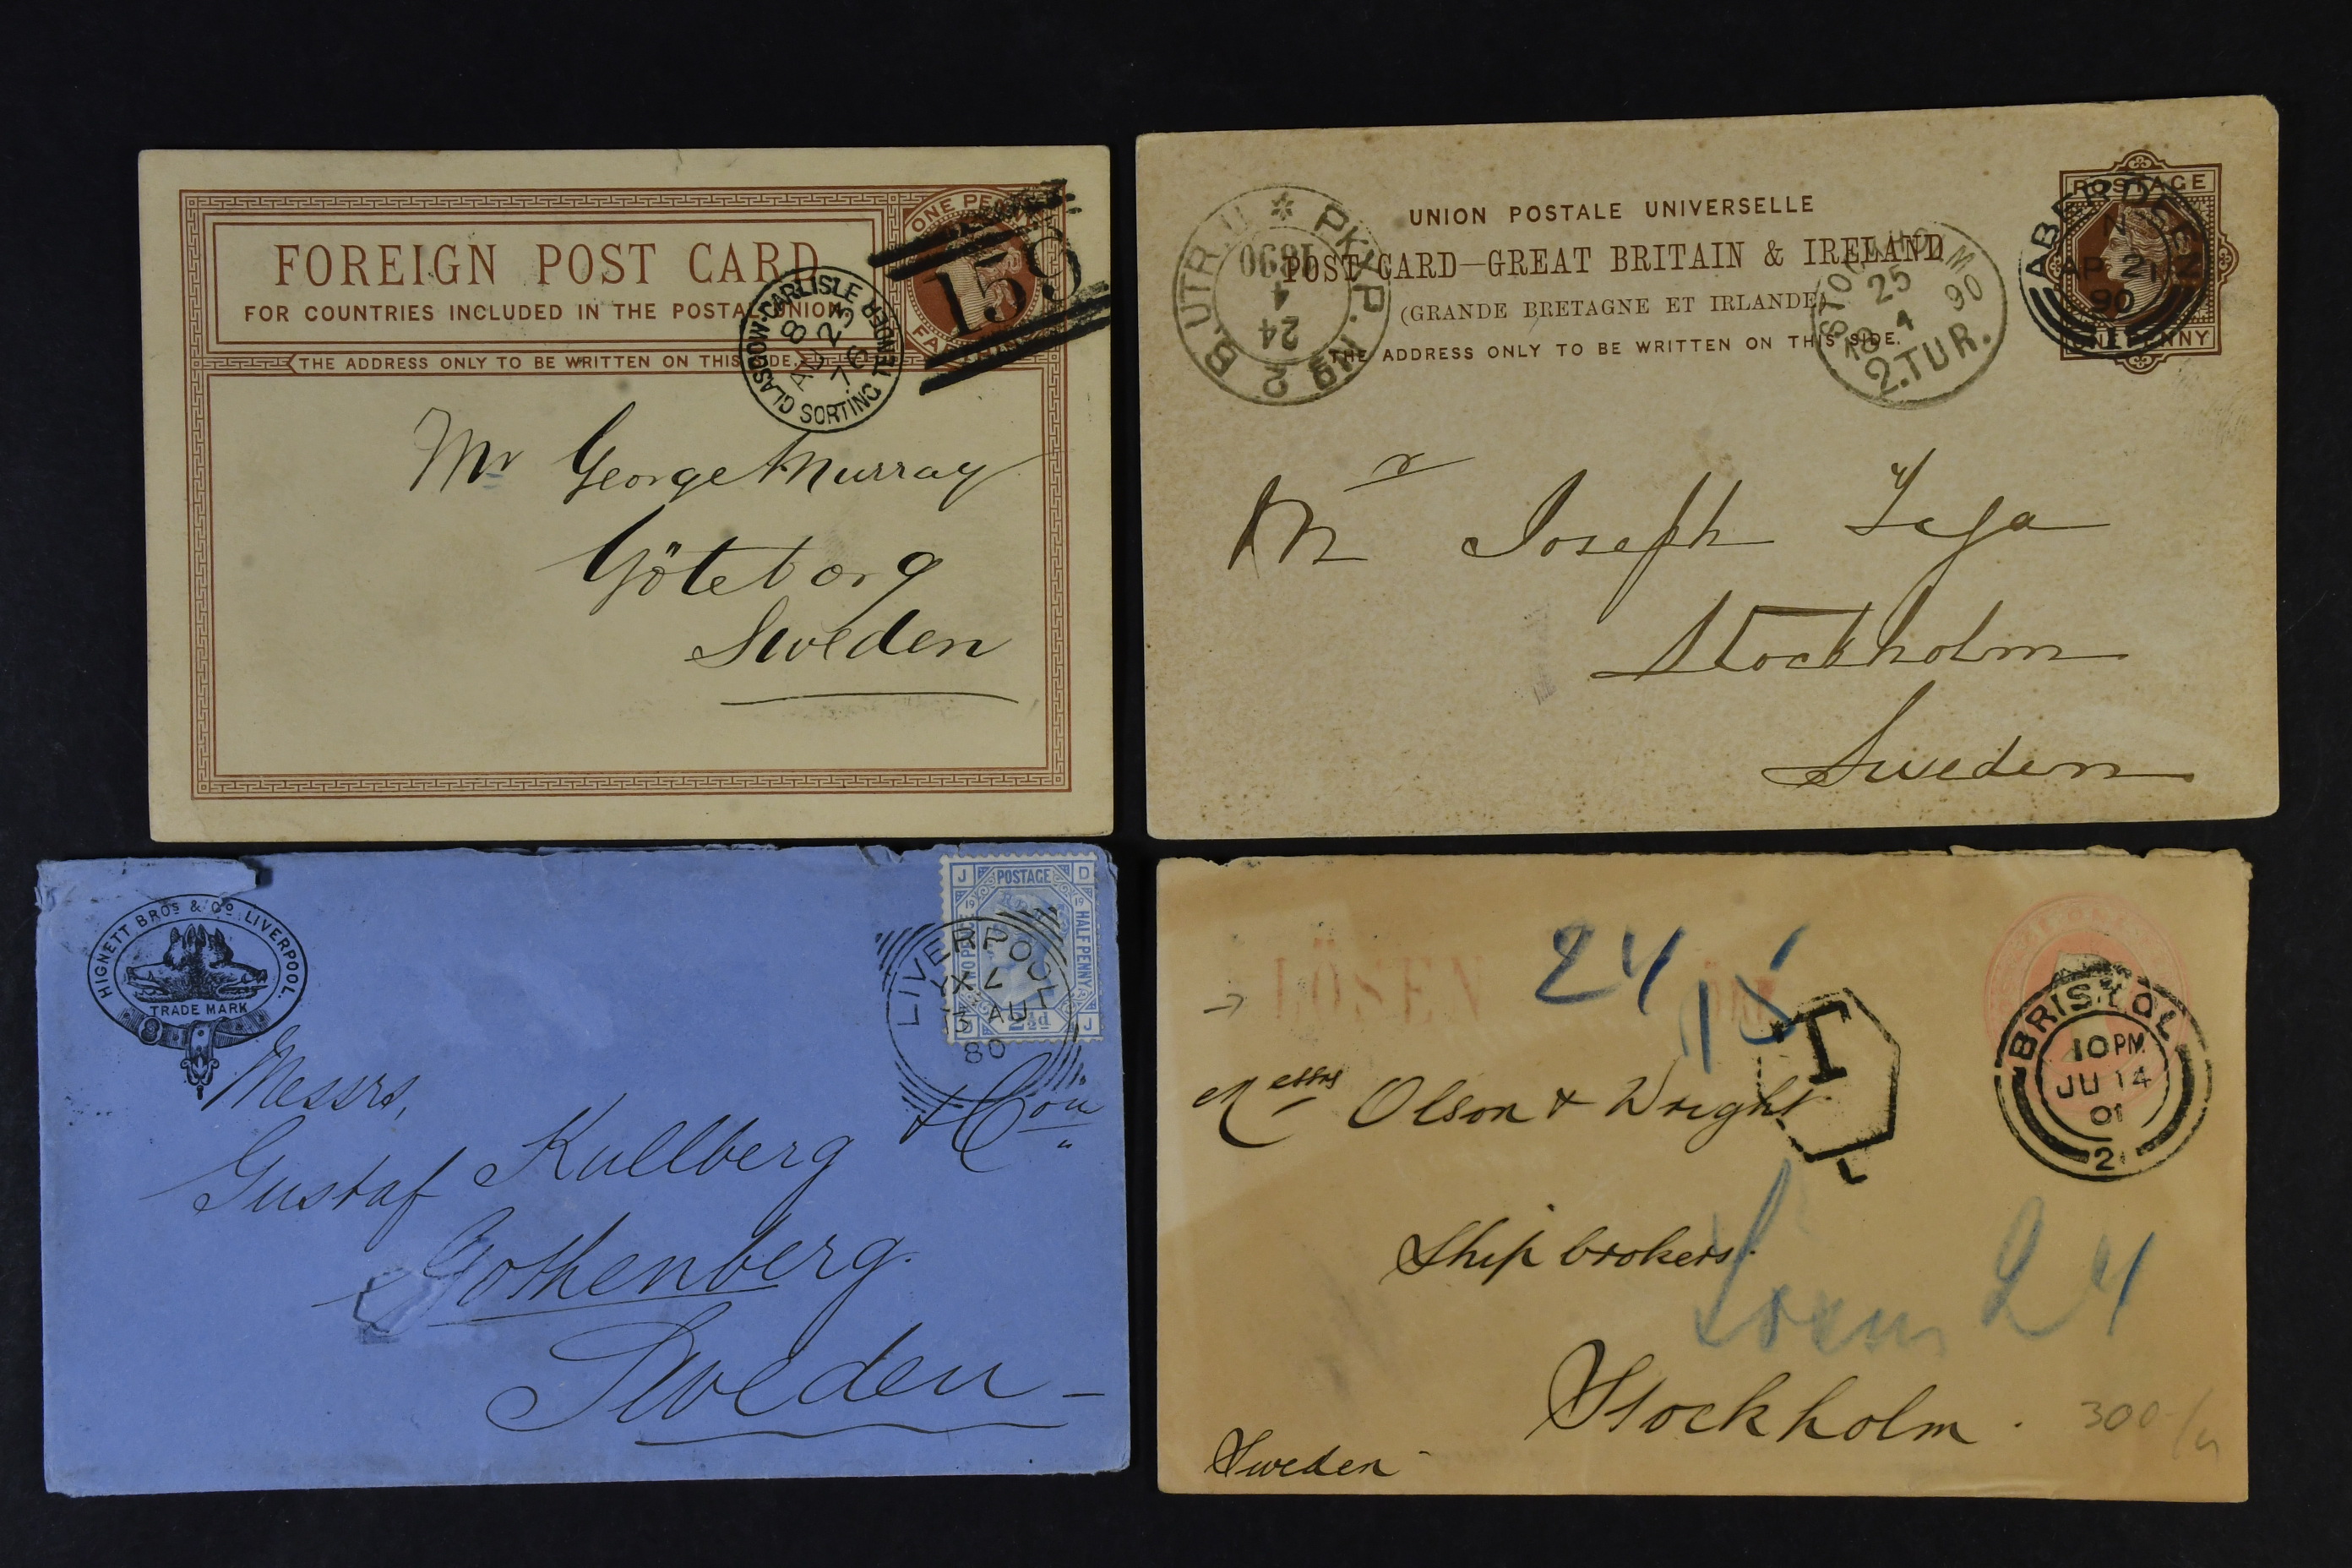 FOREIGN POST CARD
FOR COUNTRIES INCLUDED IN THE POSTAL UNION.
THE ADDRESS ONLY TO BE WRITTEN ON THIS SIDE.
ONE PENNY
159
GLASGOW-CARLISLE SORTING TENDER
8
AU 23
76
Mr George Murray
Göteborg
Sweden
UNION POSTALE UNIVERSELLE
POST CARD—GREAT BRITAIN & IRELAND
(GRANDE BRETAGNE ET IRLANDE)
THE ADDRESS ONLY TO BE WRITTEN ON THIS SIDE.
PKXP. Nº 2 B. UTR. U
24
4
1890
STOCKHOLM
25
18 4 90
2.TUR.
POSTAGE
ONE PENNY
ABERDEEN
AP 21
90
1
Mr Joseph
Stockholm
Sweden
HIGNETT BROS & CO. LIVERPOOL.
TRADE MARK
J POSTAGE D
19 19
TWO PENCE HALFPENNY
2½d J
LIVERPOOL
13 AU
80
Messrs,
Gustaf Kullberg & Cou
Gothenberg.
Sweden
LÖSEN
24
15
T
L
BRISTOL
10 PM
JU 14
01
2
Messrs Olson & Wright
Ship brokers.
Lösen 24
Stockholm.
Sweden
300